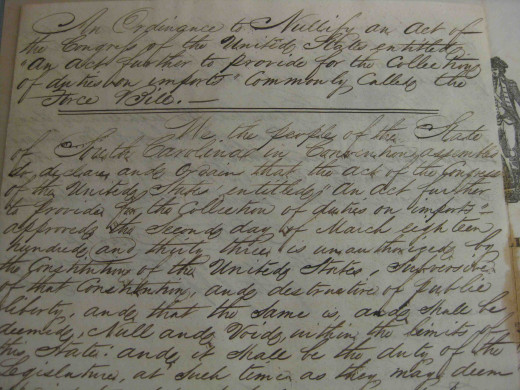 An Ordinance to Nullify an act of
the Congress of the United States entitled
"An act further to provide for the Collection
of duties on imports" Commonly Called the
Force Bill. —
We, the people of the State
of South Carolina in Convention assembled
do, declare and Ordain that the act of the Congress
of the United States, entitled, "An act further
to provide for the Collection of duties on imports"
approved the Second day of March eighteen
hundred and thirty three is unauthorized by
the Constitution of the United States, Subversive
of that Constitution, and destructive of public
liberty, and that the same is, and shall be
deemed, Null and Void, within the limits of
this State: and it shall be the duty of the
Legislature, at such time as they may deem